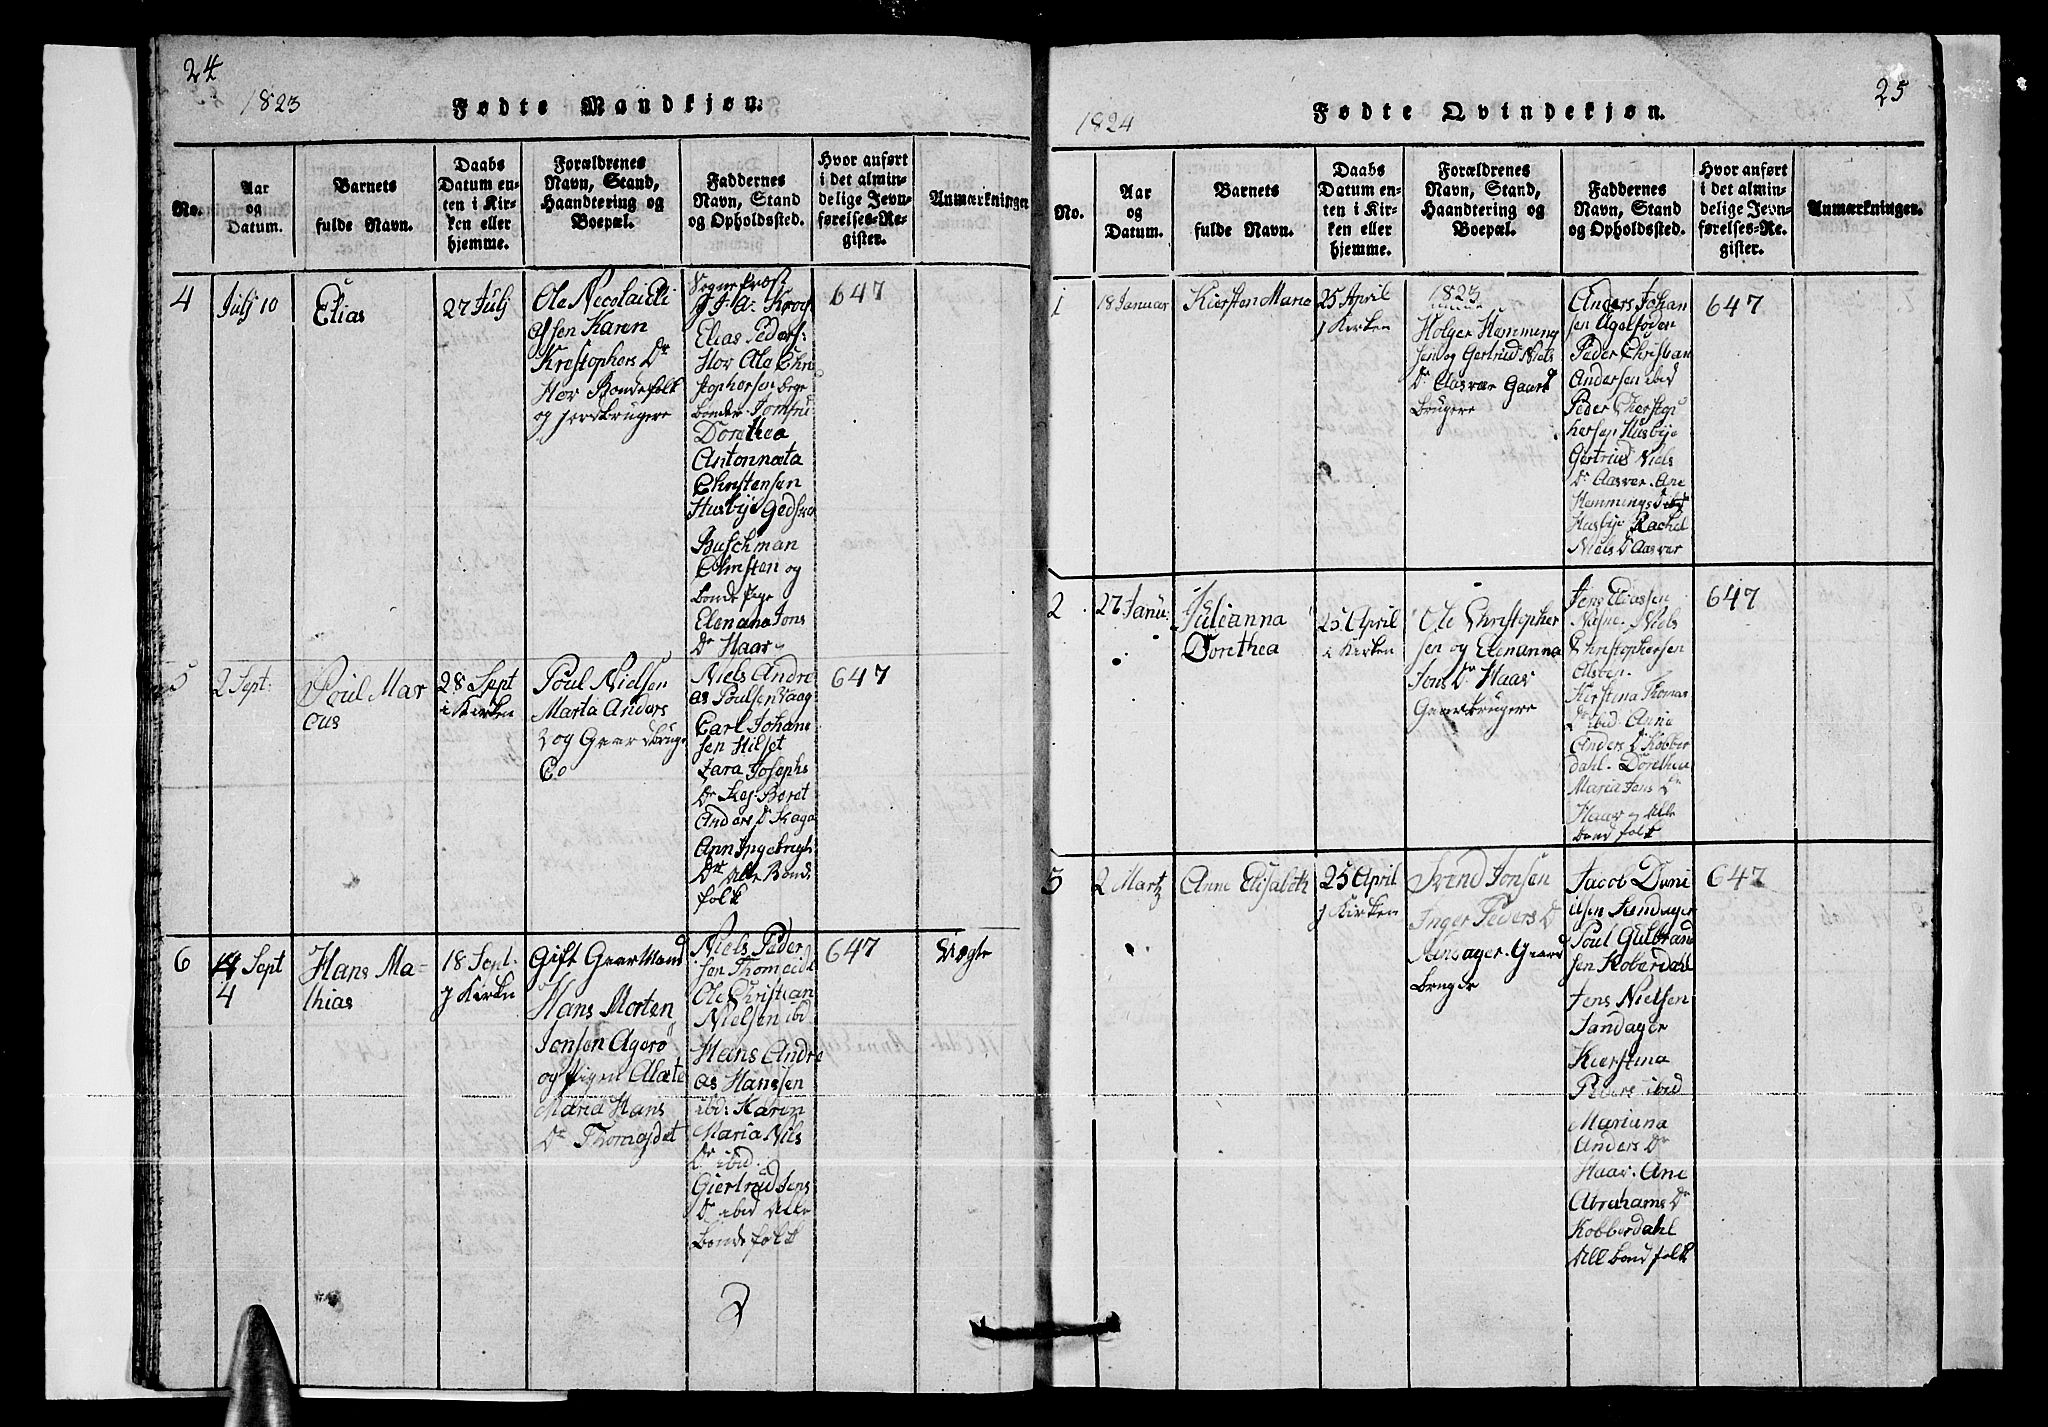 24
1823
Fødte Mandkjøn.
No.
Aar
og
Datum.
Barnets
fulde Navn.
Daabs
Datum en-
ten i Kir-
ken eller
hjemme.
Forældrenes
Navn, Stand,
Haandtering og
Boepæl.
Faddernes
Navn, Stand
og Opholdssted.
Hvor anført
i det almin-
delige Jevn-
førelses-Re-
gister.
Anmærkninger
4
Julj 10
Elias
27 Julj
Ole Necolai Eli
assen Karen
Kristophers Dr
Hov Bondefolk
og jordbrugere
Sogne Præst
J. A. Krog
Elias Peders:
Hov Ole Chri
stophersen bege
bønder Jomfru
Dorethea
Antonnæta
Christensen
Husbÿe Gedske
Buschman
Christen og
bonde Pige
Elenana Jons
Dr Haar
647
5
2 Sept:
Poul Mar
cus
28 Sept
i Kirken
Poul Nielsen
Marta Anders
Dr og Gaardbruge
Niels Andre
as Poulsen Vaag
Carl Johane
sen Hilset
Zara Josephs
Dr Beret
Anders Dr Skaga
Ann Ingebrigts
Dr Alle Bonde
folk
647
6
14 Sept
4
Hans Ma-
thias
18 Sept.
J Kirken
Gift Gaar Mand
Hans Morten
Jonsen Agerø
og Pigen Alæte
Maria Hans
Dr Thomasdet
Niels Peder
sen Thomasdet
Ole Christian
Nielsen ibd
Hans Andre
as Hanssen
ibd: Karen
Maria Nils
Dr ibid.
Giertrud Jens
Dr ibid Alle
bondefolk
647
Uægte
25
1824
Fødte Qvindekjøn.
No.
Aar
og
Datum.
Barnets
fulde Navn.
Daabs
Datum en-
ten i Kir-
ken eller
hjemme.
Forældrenes
Navn, Stand,
Haandtering og
Boepæl.
Faddernes
Navn, Stand
og Opholdssted.
Hvor anført
i det almin-
delige Jevn-
førelses-Re-
gister.
Anmærkninger.
1
18 Januar
Kiersten Maria
25 April
J Kirken
1823
Holger Hemming
sen og Gertrud Niels
Dr Aasvær Gaard
brugere
Anders Johan
sen Agelsøden
Peder Christian
Andersen ibid
Peder Christop
hersen Husbÿe
Gertrud Niels
Dr Aasvær. Ane
Hemmings
Husbÿe Rachel
Niels Dr Aasvær
647
2
27 Janu:
Julianna
Dorethea
25 April
i Kirken
Ole Christopher
sen og Elenanna
Jons Dr Haar
Gaardbrugere
Jens Eliassen
Næsne. Niels
Christophersen
Alsten.
Kierstina Thomas
Dr ibid. Anne
Anders Dr Kobber
dahl. Dorethea
Maria Jens Dr
Haar Alle
bondfolk
647
3
2 Martz
Anne Elisabeth
25 April
J Kirken
Svend Jonsen
Inger Peders Dr
Sandager. Gaard
bruger
Jacob Dani
elsen Sandager
Poul Gulbrand
sen Koberdahl
Jens Nielsen
Sandager
Kierstina
Peders ibid
Mariana
Anders Dr
Haar. Ane
Abrahams Dr
Kobberdahl
Alle bondfolk
647